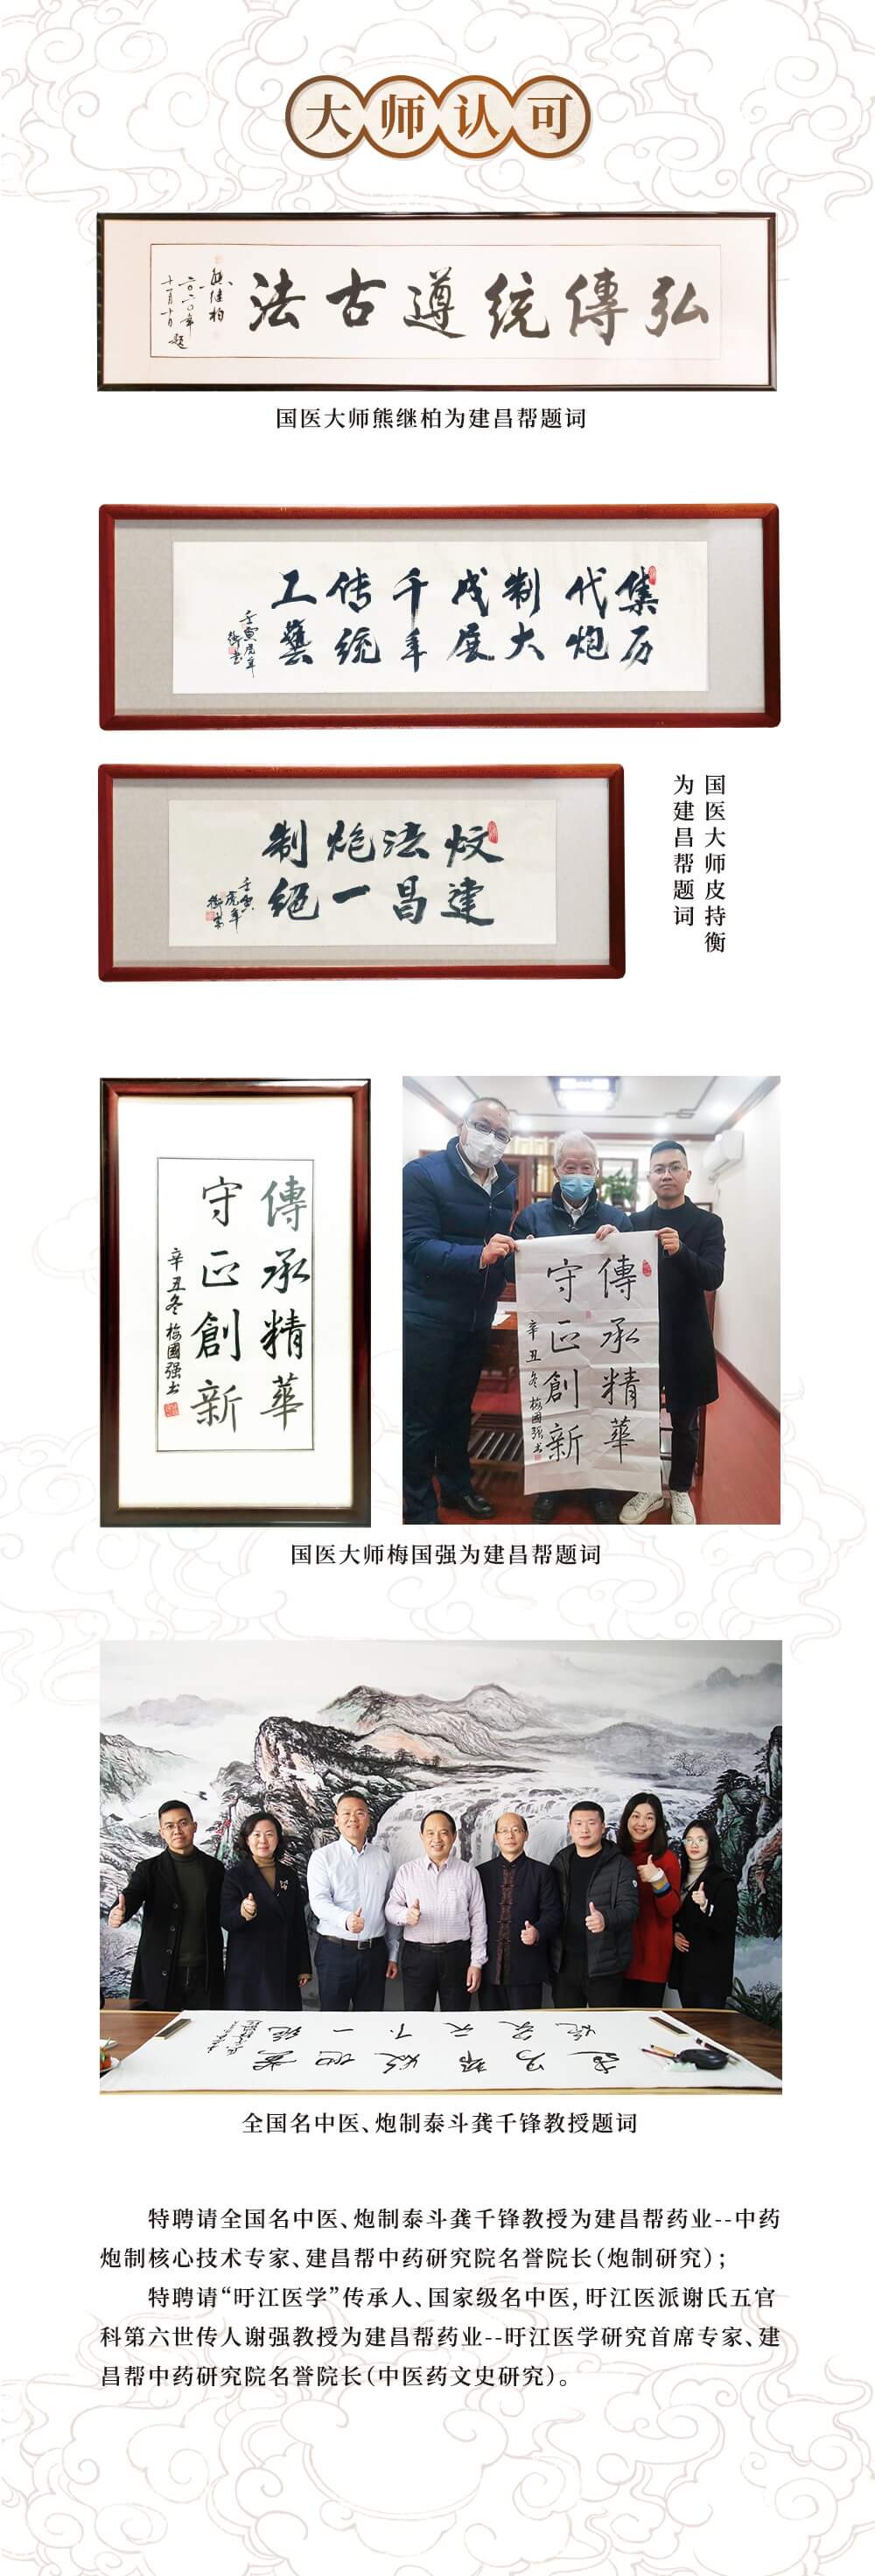 大师认可
弘傳统遵古法
熊继柏
二〇二〇年
十一月十日 题
国医大师熊继柏为建昌帮题词
集历
代炮
制大
成展
千年
传统
工藝
壬寅虎年
衡书
炆建
法昌
炮一
制绝
壬寅
虎年
衡书
国医大师皮持衡
为建昌帮题词
傳承精華
守正創新
辛丑冬 梅國强书
傳承精華
守正創新
辛丑冬 梅國强书
国医大师梅国强为建昌帮题词
全国名中医、炮制泰斗龚千锋教授题词
特聘请全国名中医、炮制泰斗龚千锋教授为建昌帮药业--中药
炮制核心技术专家、建昌帮中药研究院名誉院长（炮制研究）；
特聘请“旴江医学”传承人、国家级名中医, 旴江医派谢氏五官
科第六世传人谢强教授为建昌帮药业--旴江医学研究首席专家、建
昌帮中药研究院名誉院长（中医药文史研究）。